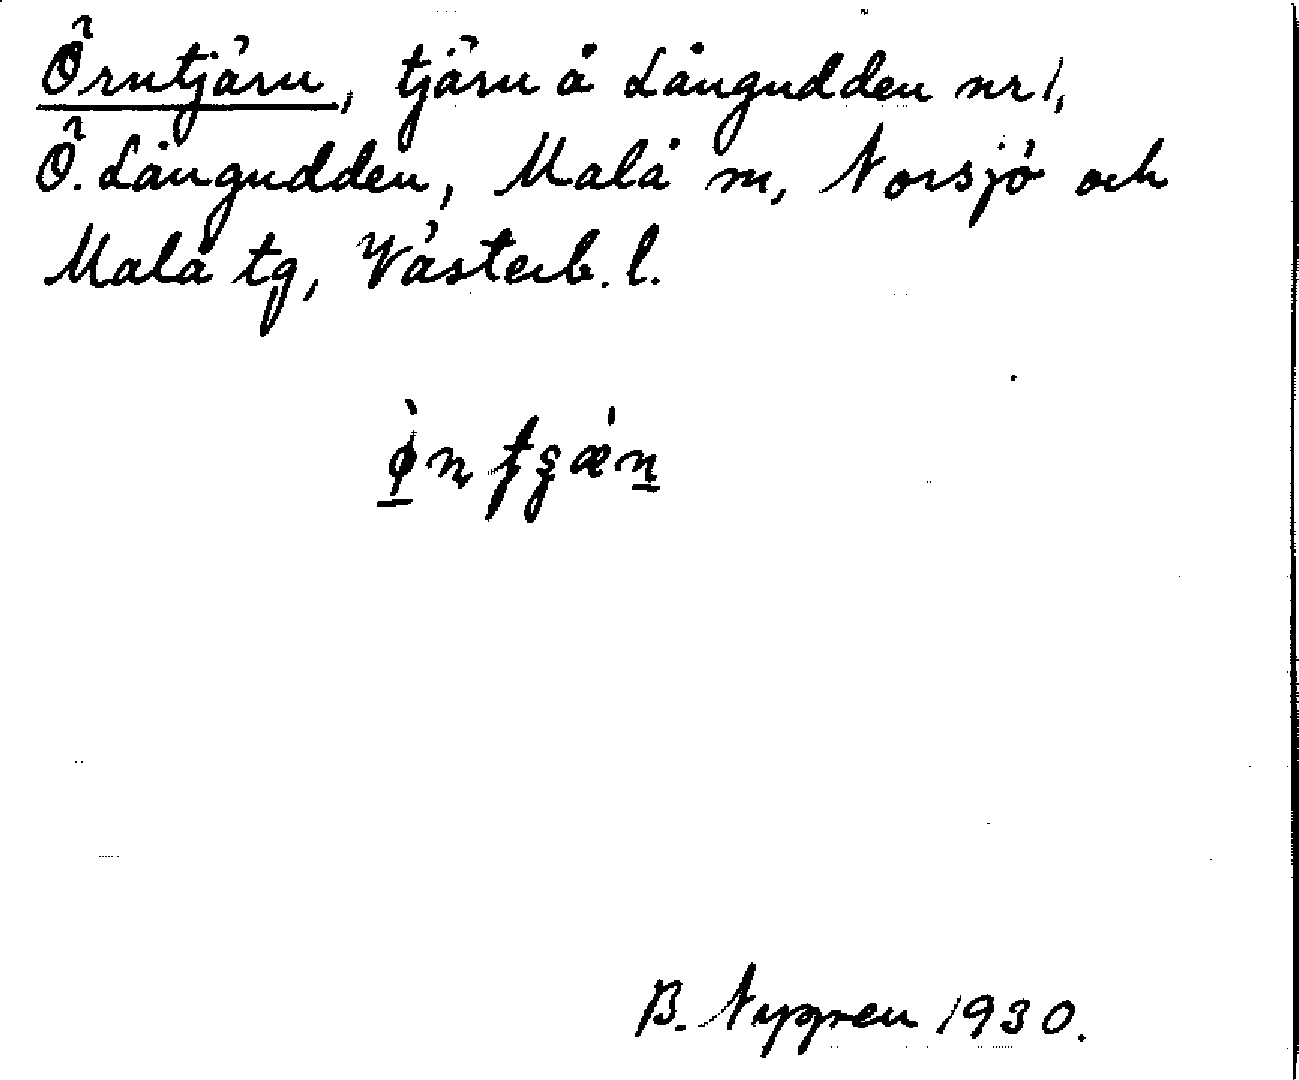 Örntjärn, tjärn å Långudden nr 1,
Ö. Långudden, Malå m, Norsjö och
Malå tg, Västerb. l.
B. Nygren 1930.